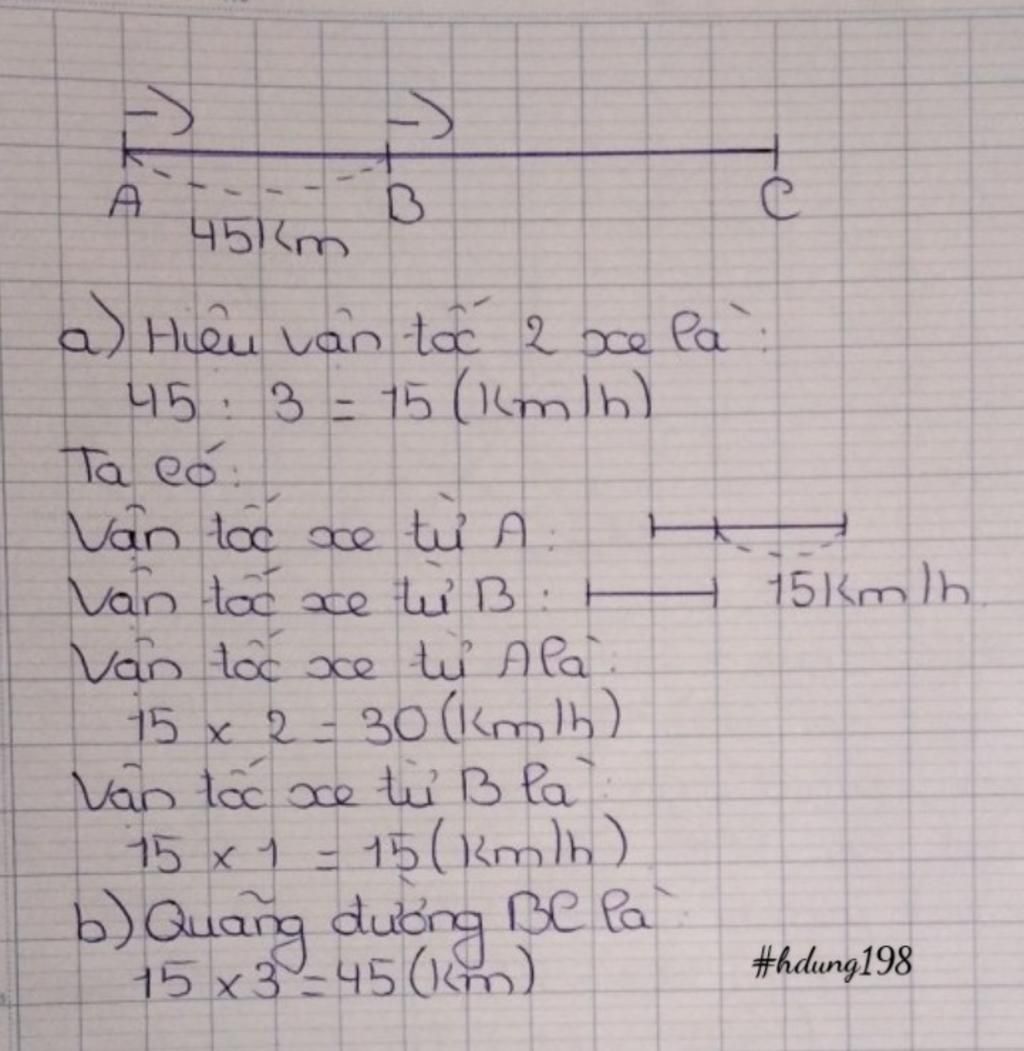 A B C
45km
a) Hiệu vận tốc 2 xe là:
45 : 3 = 15 (km/h)
Ta có:
Vận tốc xe từ A:
Vận tốc xe từ B: 15km/h
Vận tốc xe từ A là:
15 x 2 = 30 (km/h)
Vận tốc xe từ B là:
15 x 1 = 15 (km/h)
b) Quãng đường BC là:
15 x 3 = 45 (km)
#hdung198